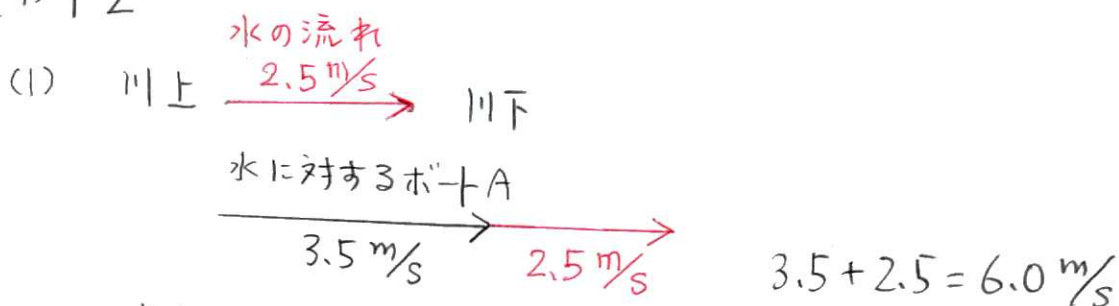 水の流れ
(1) 川上 2.5 m/s 川下
水に対するボートA
3.5 m/s 2.5 m/s 3.5+2.5=6.0 m/s